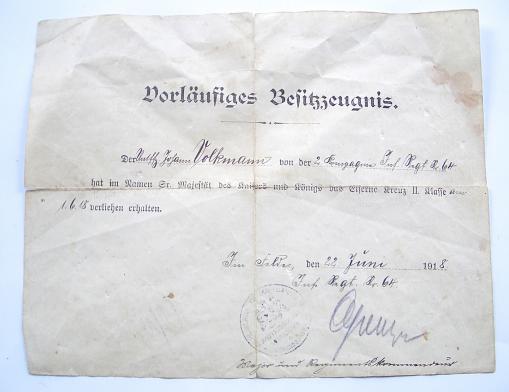 Vorläufiges Besitzzeugnis.
Der Johann Volkmann von der 2 Kompagnie Inf. Regt. Nr. 64
hat im Namen Sr. Majestät des Kaisers und Königs das Eiserne Kreuz II. Klasse am
1.6.18 verliehen erhalten.
Im Felde, den 22. Juni 1918
Inf. Regt. Nr. 64.
Major und Regimentskommandeur